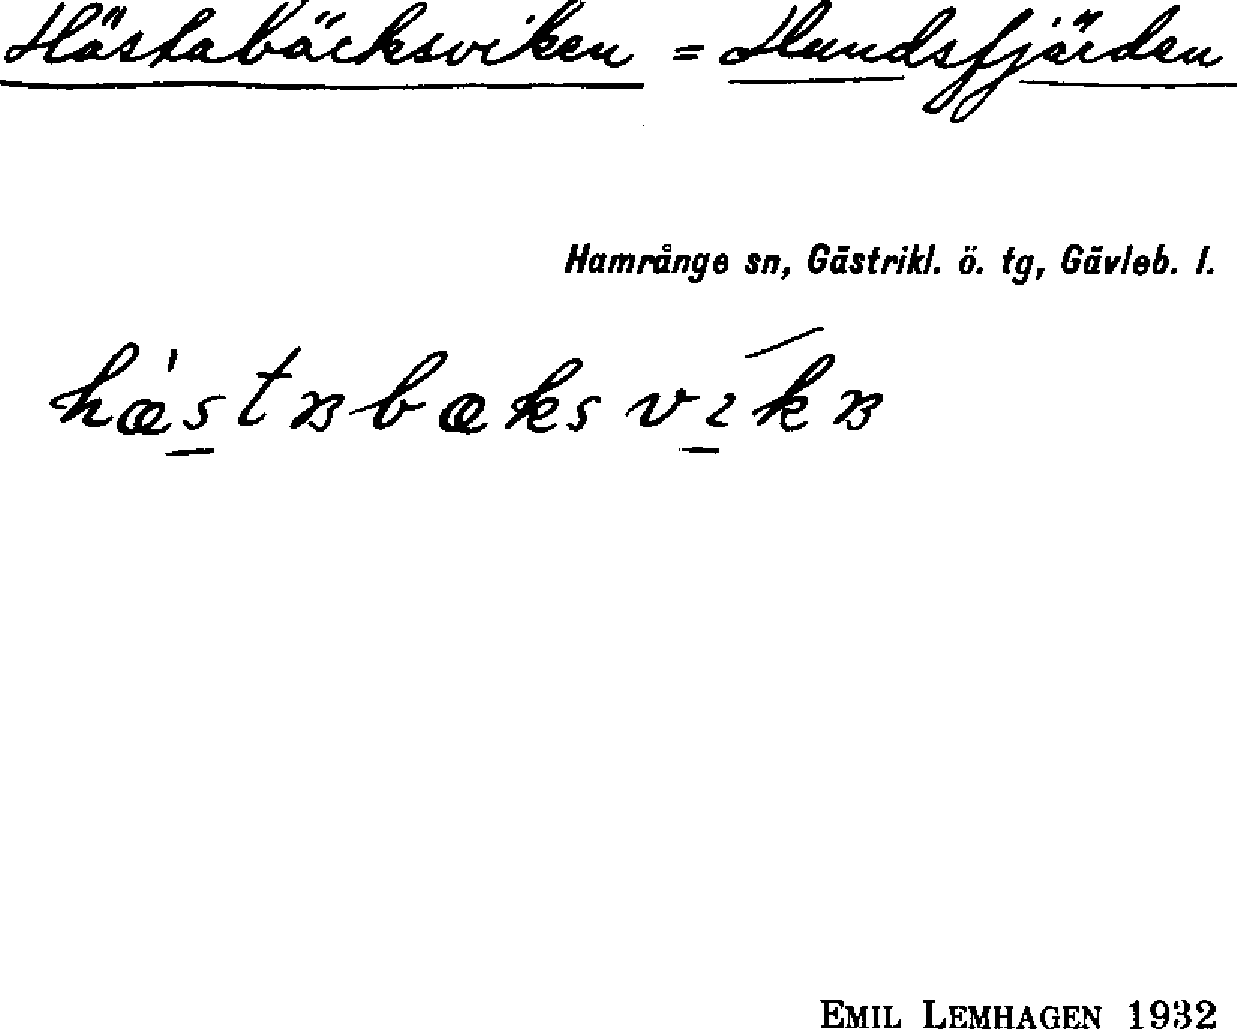 Hästabäcksviken = Hundsfjärden
Hamrånge sn, Gästrikl. ö. tg, Gävleb. l.
EMIL LEMHAGEN 1932